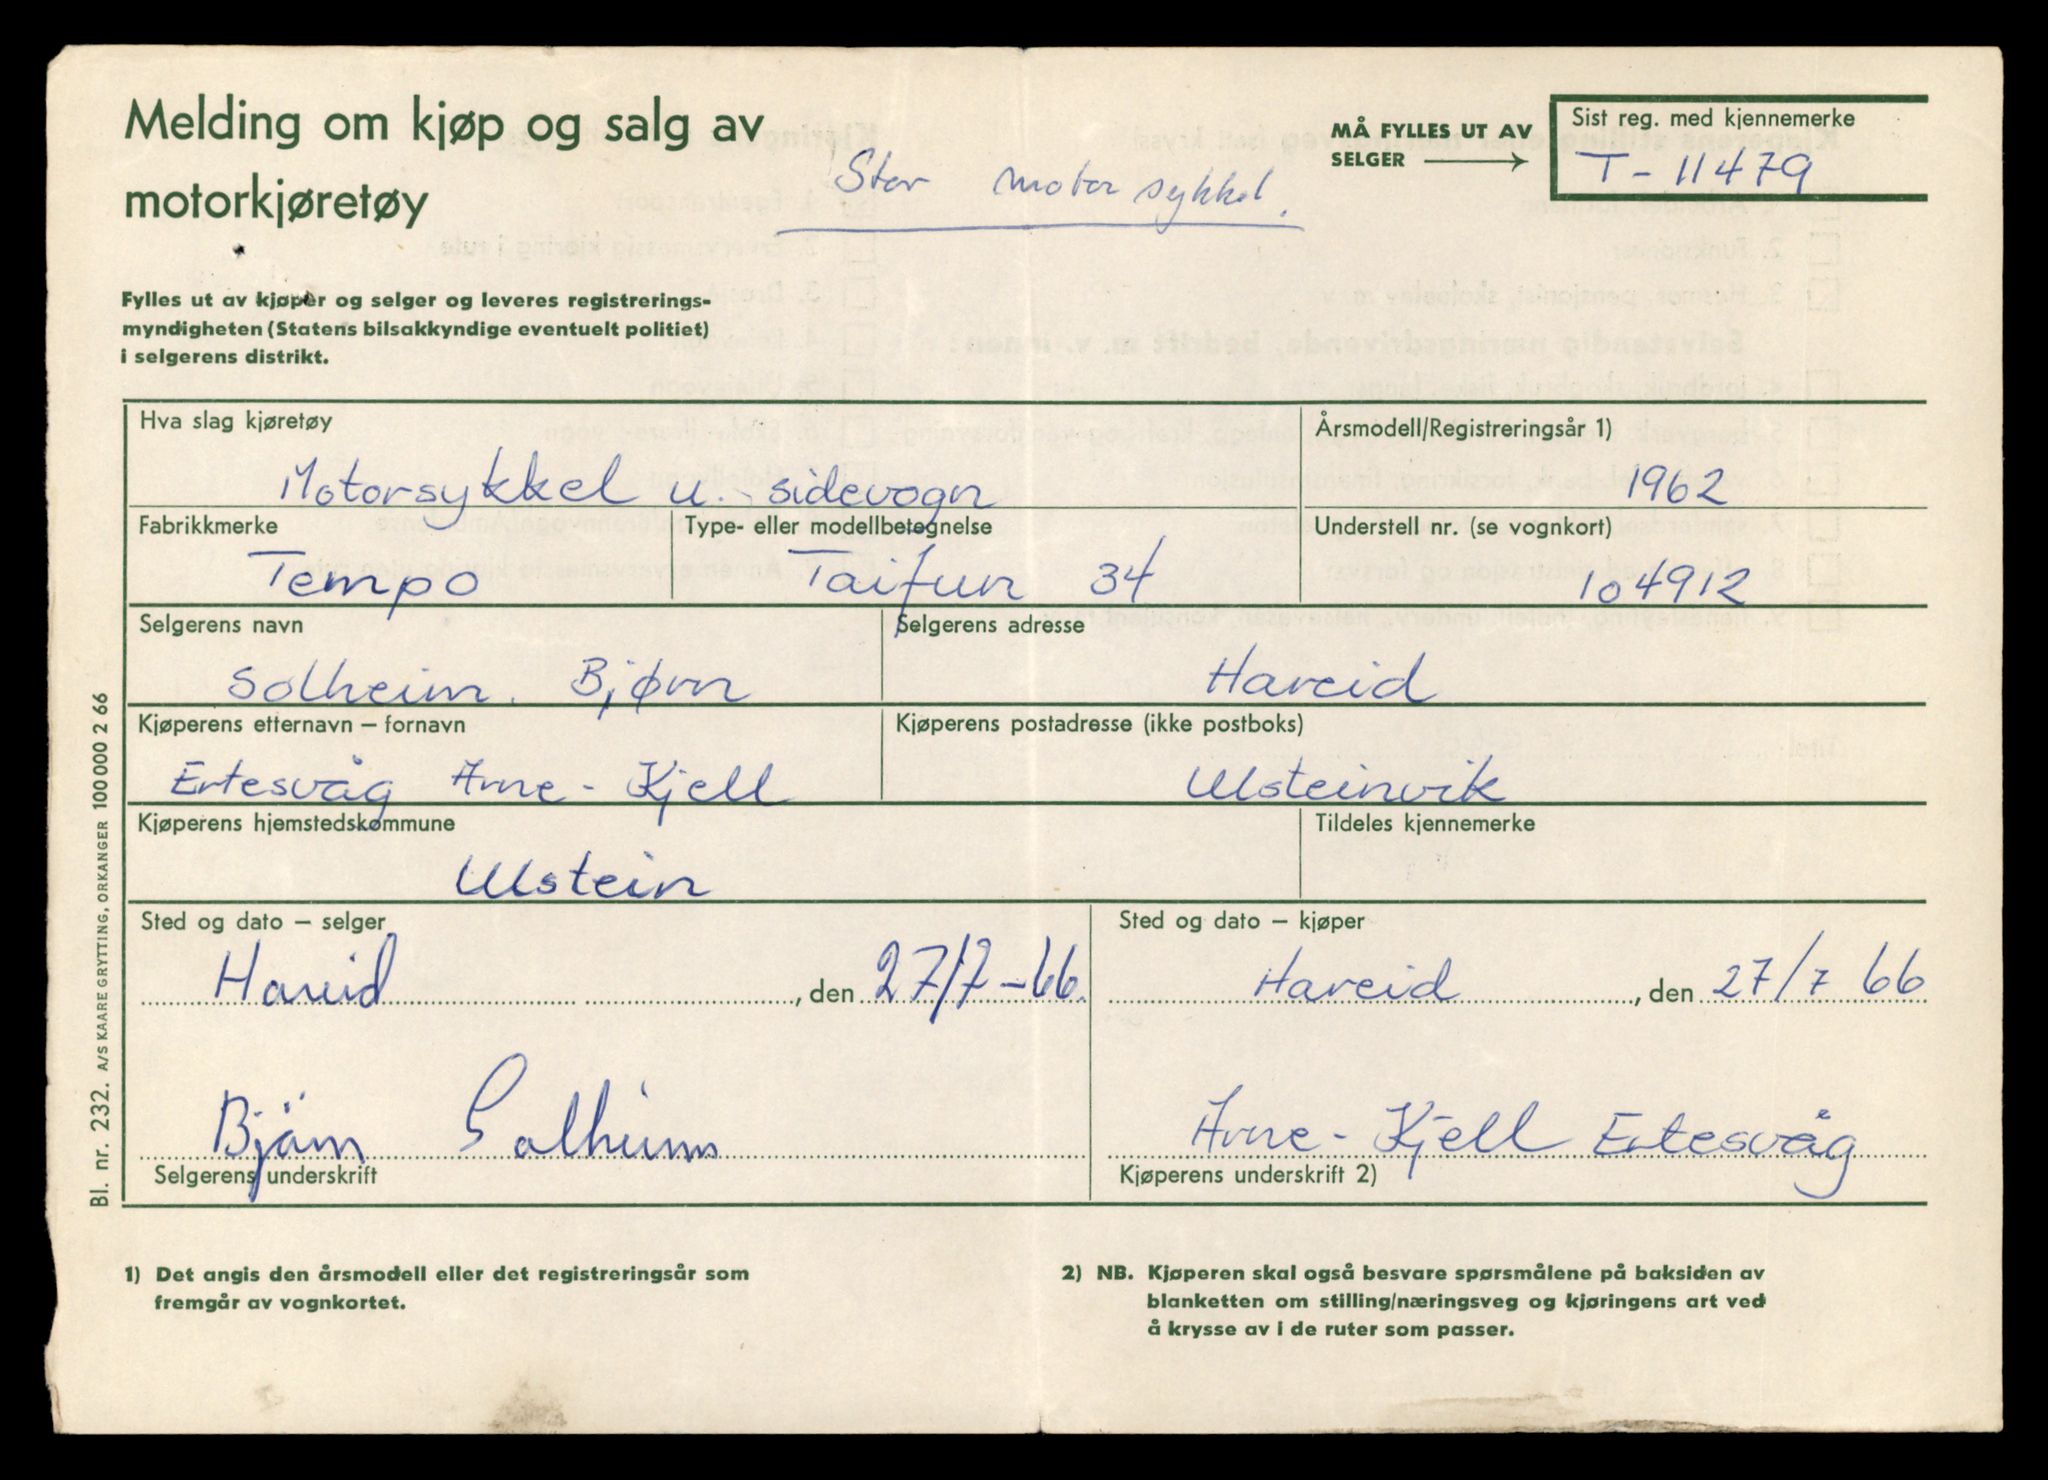 Melding om kjøp og salg av
motorkjøretøy
Stor motor sykkel.
MÅ FYLLES UT AV
SELGER
Sist reg. med kjennemerke
T - 11479
Fylles ut av kjøper og selger og leveres registrerings-
myndigheten (Statens bilsakkyndige eventuelt politiet)
i selgerens distrikt.
Hva slag kjøretøy
Motorsykkel u. sidevogn
Årsmodell/Registreringsår 1)
1962
Fabrikkmerke
Tempo
Type- eller modellbetegnelse
Taifun 34
Understell nr. (se vognkort)
104912
Selgerens navn
Solheim. Bjørn
Selgerens adresse
Hareid
Kjøperens etternavn – fornavn
Ertesvåg Arne - Kjell
Kjøperens postadresse (ikke postboks)
Ulsteinvik
Kjøperens hjemstedskommune
Ulstein
Tildeles kjennemerke
Sted og dato – selger
Hareid, den 27/7 - 66.
Sted og dato – kjøper
Hareid, den 27/7 66
Bjørn Solheim
Selgerens underskrift
Arne - Kjell Ertesvåg
Kjøperens underskrift 2)
Bl. nr. 232. A/S KAARE GRYTTING, ORKANGER 100 000 2 66
1) Det angis den årsmodell eller det registreringsår som
fremgår av vognkortet.
2) NB. Kjøperen skal også besvare spørsmålene på baksiden av
blanketten om stilling/næringsveg og kjøringens art ved
å krysse av i de ruter som passer.